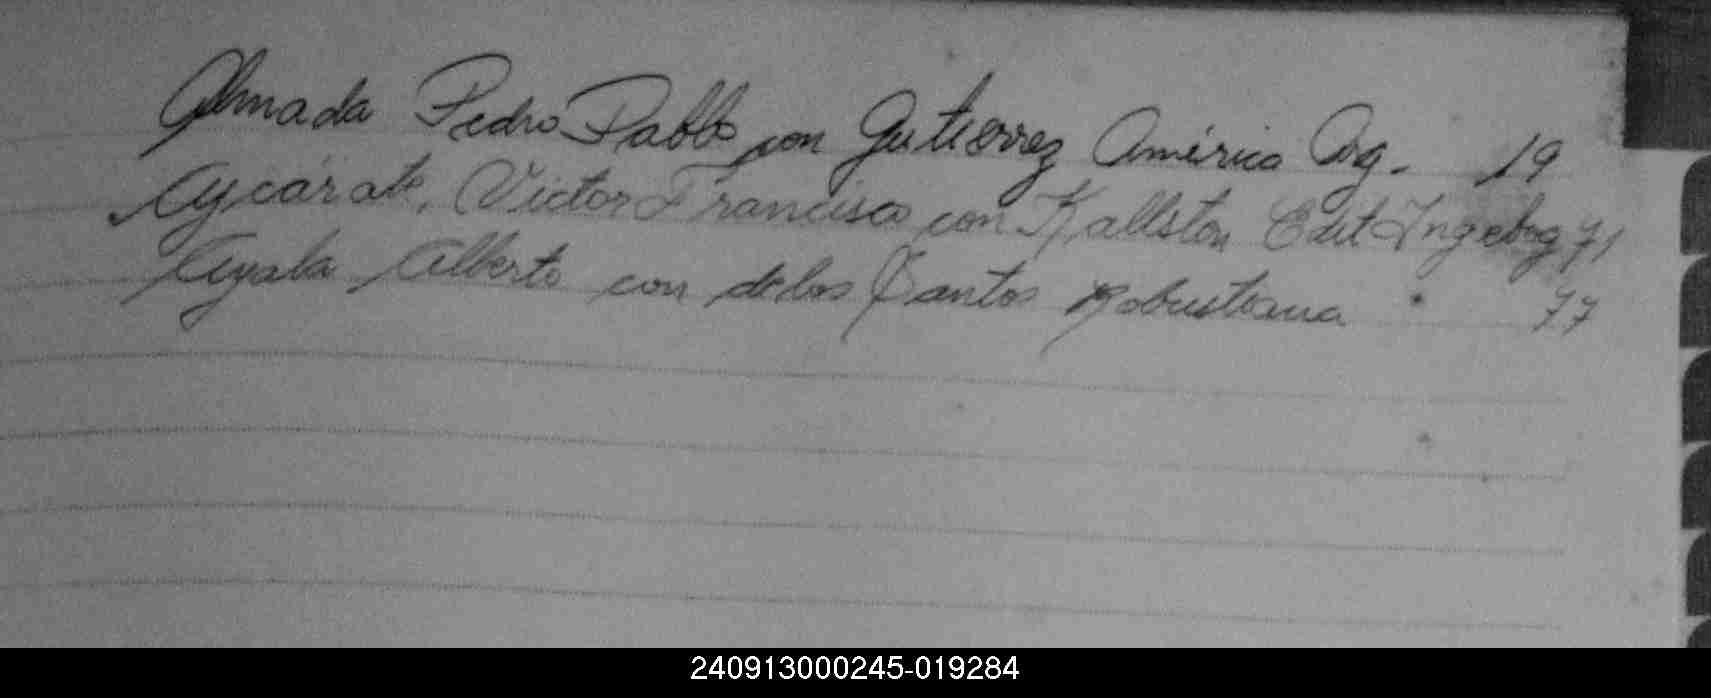 Almada Pedro Pablo con Gutierrez América Arg. 19
Aycárate, Victor Francisco con Kallston Edit Ingeborg 71
Ayala Alberto con de los Santos Robustiana 77
240913000245-019284